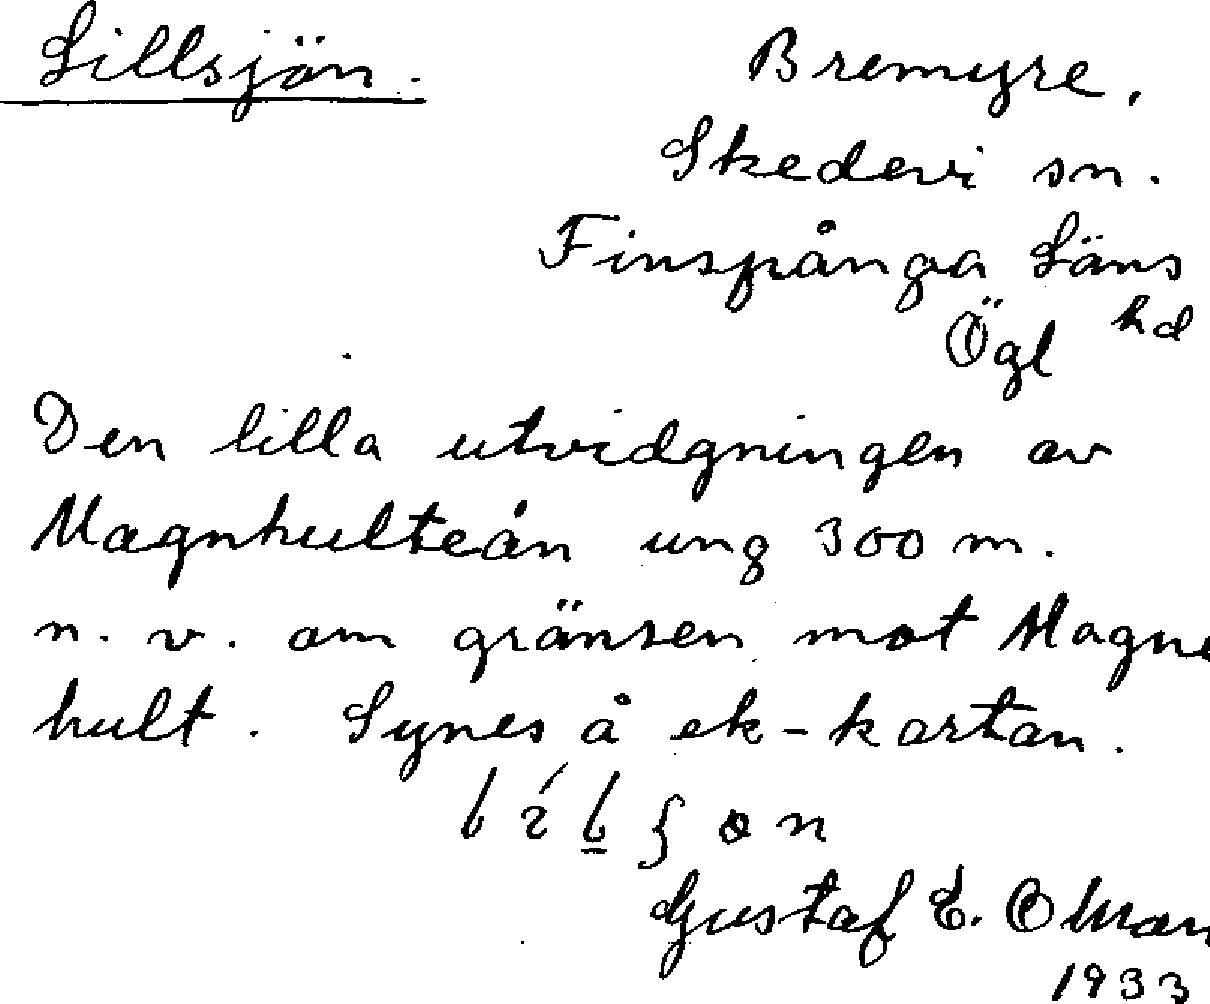 Lillsjön.
Bremyre.
Skedevi sn.
Finspånga Läns
hd
Ögl
Den lilla utvidgningen av
Magnhulteån ung 300 m.
n. v. om gränsen mot Magne
hult. Synes å ek-kartan.
Gustaf E.
1933